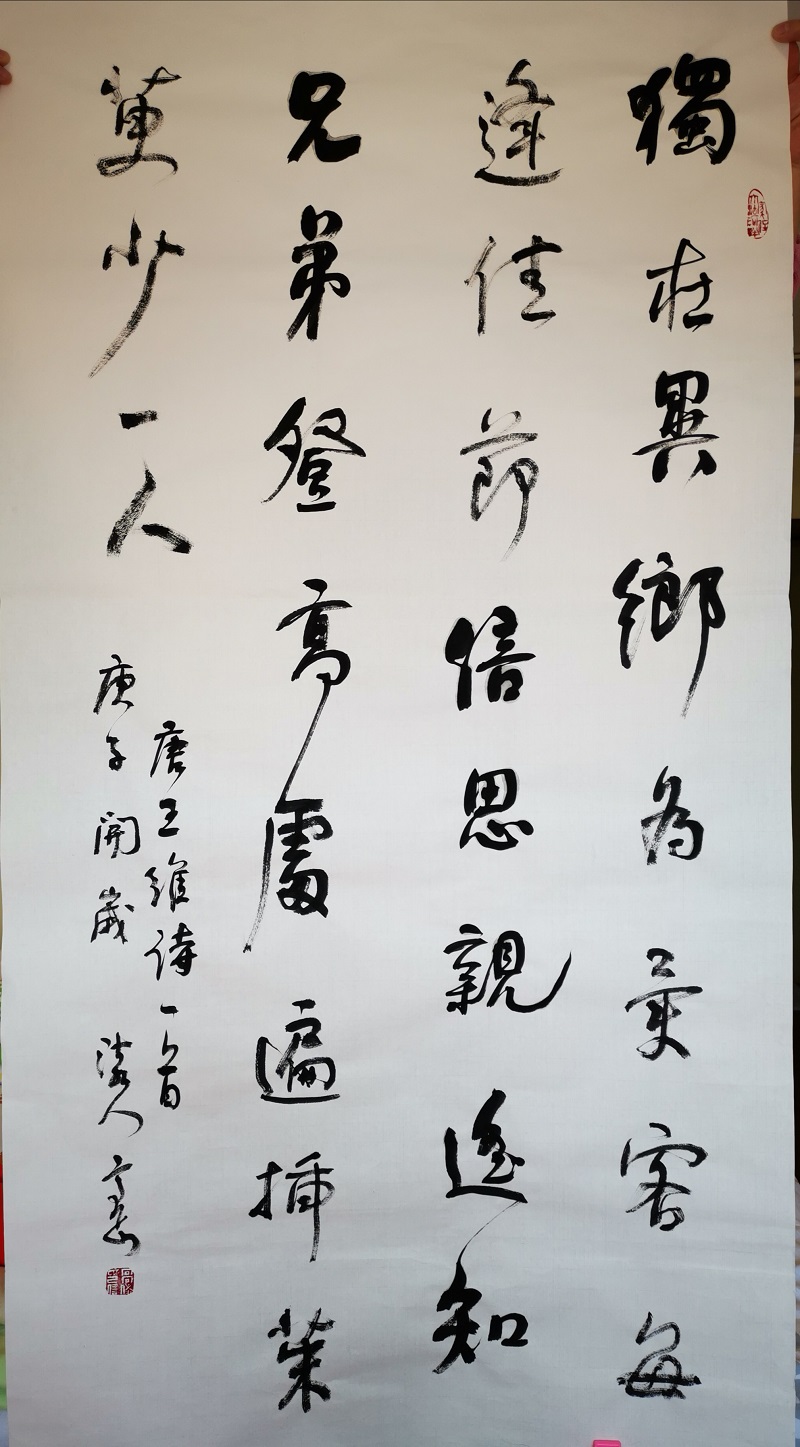 獨在異鄉為異客每
逢佳節倍思親遙知
兄弟登高處遍插茱
萸少一人
唐王維詩一首
庚子開歲